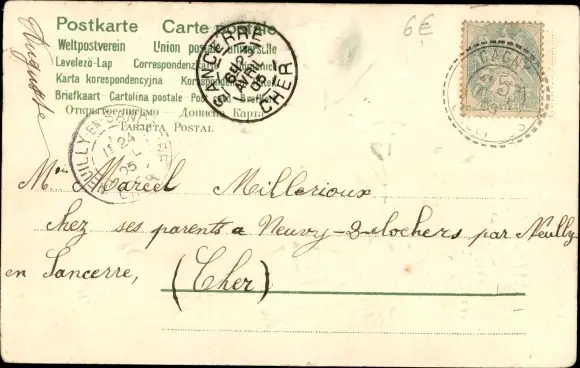 Postkarte Carte postale
Weltpostverein Union postale universelle
Levelező-Lap Correspondenzkarte
Karta korespondencyjna
Briefkaart Cartolina postale Post
Открытое письмо Дописна Карта
Tarjeta Postal
Auguste
6€
SANCERRE
AVRIL
05
CHER
NEUILLY-EN-SANCERRE
24
05
5
Mr Marcel Millerioux
chez ses parents a Neuvy-2-clochers par Neuilly
en Sancerre, (Cher)